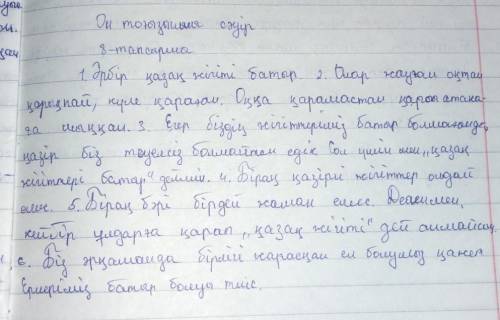 Он тоғызыншы сәуір
8-тапсырма
1. Әрбір қазақ жігіті батыр. 2. Олар жаудан оқтан
қорықпай, күле қараған. Оққа қарамастан қарап атака-
ға шыққан. 3. Егер біздің жігіттеріміз батыр болмағанда,
қазір біз тәуелсіз болмайтын едік Сол үшін мен „қазақ
жігіттері батыр" деймін. 4. Бірақ қазіргі жігіттер ондай
емес. 5. Бірақ бәрі бірдей жаман емес. Дегенмен,
кейбір ұлдарға қарап „қазақ жігіті" деп айта алмайсың.
6. Біз әрқашанда бірлігі жарасқан ел болуымыз қажет
Ерлеріміз батыр болуы тиіс.